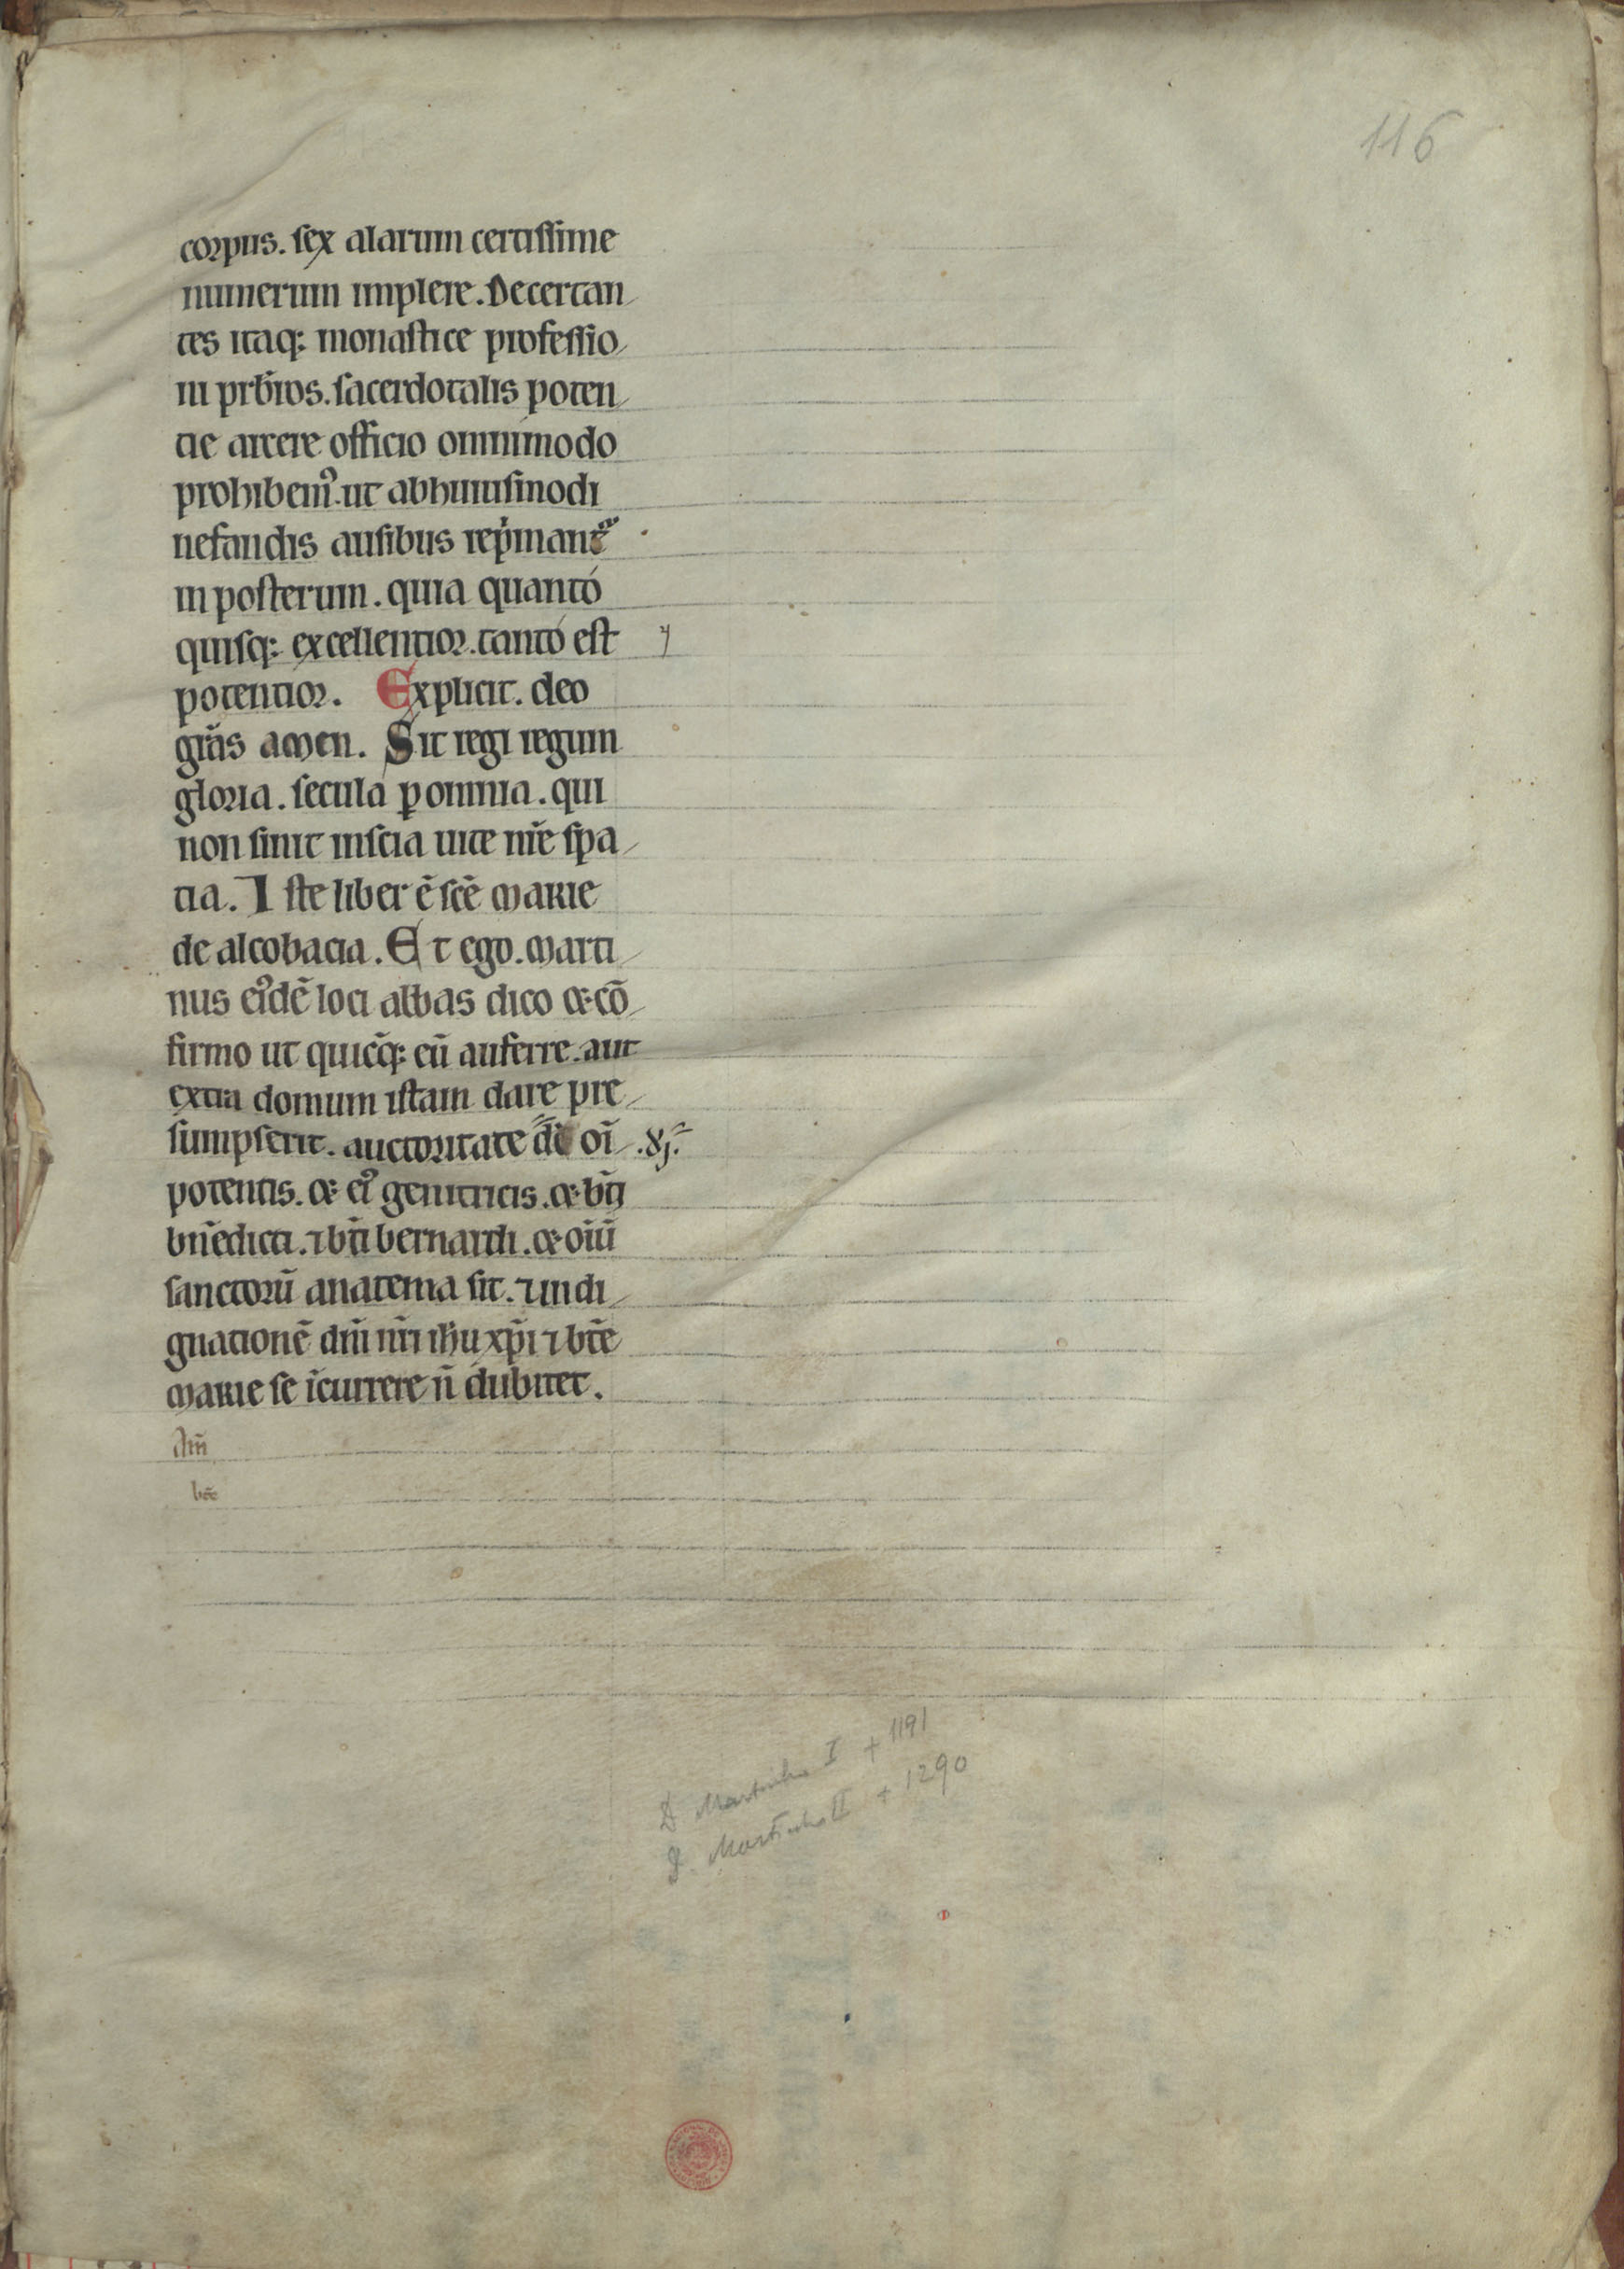 116
corpus. sex alarum certissime
numerum implere. Decertan
tes itaq; monastice professio
ni prb̄ros. sacerdotalis poten
tie arcere officio omnimodo
prohibem᷒. ut abhuiusmodi
nefandis ausibus rep̍mant᷑
in posterum. quia quantó
quisq; excellentior. tantó est
potentior. Explicit. deo
gr̄as amen. Sit regi regum
gloria. secula ꝑ omnia. qui
non sinit inscia uite nr̄e spa
tia. Iste liber ē sc̄e marie
de alcobacia. Et ego. marti
nus ei᷒dē loci abbas dico & cō
firmo ut quicq̄; eū auferre. aut
extra domum istam dare pre
sumpserit. auctoritate dī oī
potentis. & ei᷒ genitricis. & bt̄i
bn̄edicti. ⁊ bt̄i bernardi. & oīū
sanctorū anatema sit. ⁊ indi
gnationē dn̄i nr̄i ih̄u xp̄i ⁊ bt̄e
marie se īcurrere n̄ dubitet.
Am̄
D Martinho I + 1191
D. Martinho II + 1290